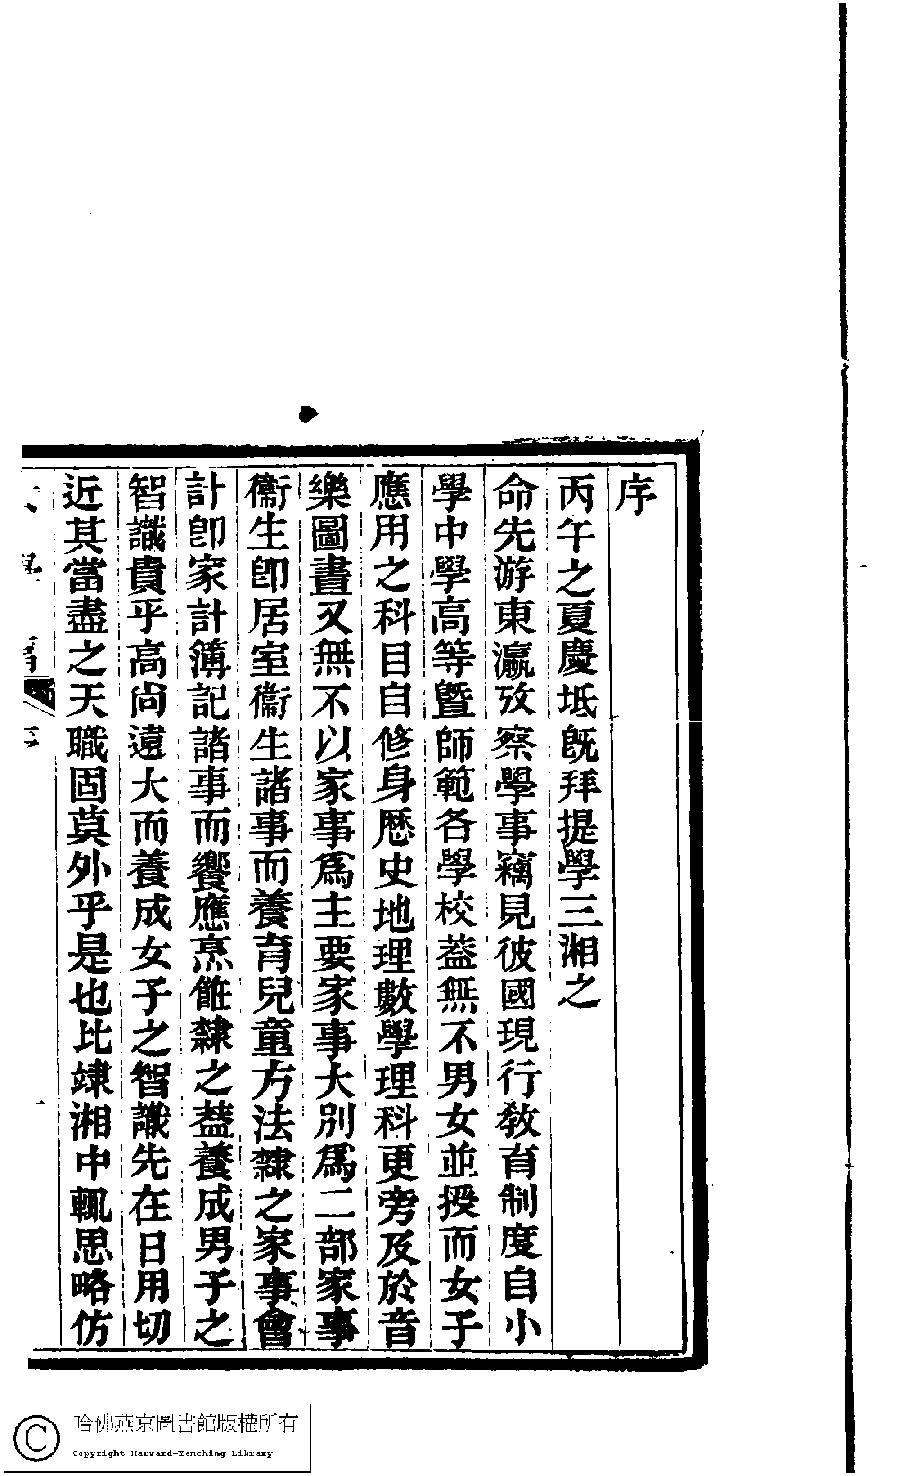 序
丙午之夏慶坻旣拜提學三湘之
命先游東瀛攷察學事竊見彼國現行敎育制度自小
學中學高等曁師範各學校葢無不男女並授而女子
應用之科目自修身歷史地理數學理科更旁及於音
樂圖畫又無不以家事爲主要家事大別爲二部家事
衞生卽居室衞生諸事而養育兒童方法隸之家事會
計卽家計簿記諸事而饗應烹飪隸之葢養成男子之
智識貴乎高尙遠大而養成女子之智識先在日用切
近其當盡之天職固莫外乎是也比竦湘中輒思略仿
序
哈佛燕京圖書館版權所有
Copyright Harvard-Yenching Library